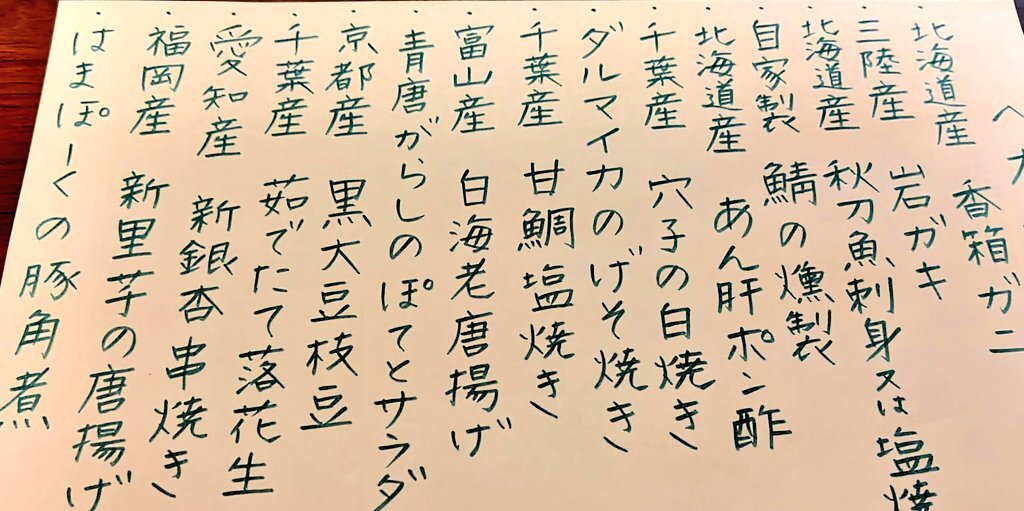 香箱ガニ
・北海道産 岩ガキ
・三陸産 秋刀魚刺身又は塩焼
・北海道産
・自家製 鯖の燻製
・北海道産 あん肝ポン酢
・千葉産 穴子の白焼き
・ダルマイカのげそ焼き
・千葉産 甘鯛塩焼き
・富山産 白海老唐揚げ
・青唐がらしのぽてとサラダ
・京都産 黒大豆枝豆
・千葉産 茹でたて落花生
・愛知産 新銀杏串焼き
・福岡産 新里芋の唐揚げ
・はまぽーくの豚角煮